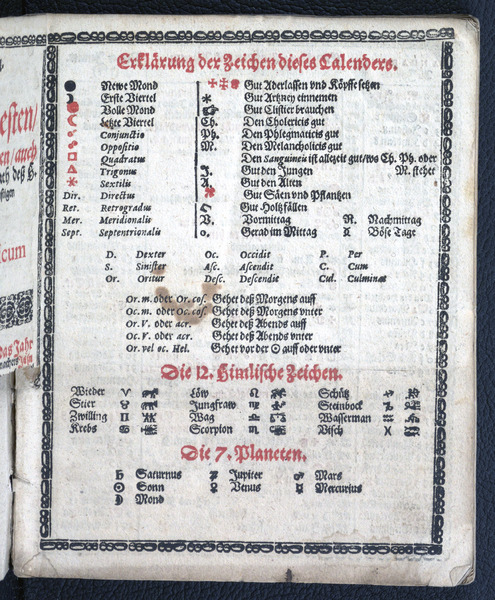 esten/
en/auch
ach deß H.
icum
das Jahr
Erklärung der Zeichen dieses Calenders.
● Newe Mond
☽ Erste Viertel
Volle Mond
☾ Letzte Viertel
☌ Conjunctio
☍ Oppositio
□ Quadratus
△ Trigonus
✶ Sextilis
Dir. Directus
Ret. Retrogradus
Mer. Meridionalis
Sept. Septentrionalis
Gut Aderlassen vnd Köpffe setzen
Gut Artzney einnemen
Gut Clistier brauchen
Ch. Den Cholericis gut
Ph. Den Phlegmaticis gut
M. Den Melancholicis gut
Den Sanguineis ist allezeit gut/wo Ch. Ph. oder
J. Gut den Jungen M. stehet
A. Gut den Alten
Gut Säen vnd Pflantzen
Gut Holtzfällen
V. Vormittag N. Nachmittag
o. Gerad im Mittag Böse Tage
D. Dexter Oc. Occidit P. Per
S. Sinister Asc. Ascendit C. Cum
Or. Oritur Desc. Descendit Cul. Culminat
Or. m. oder Or. cos. Gehet deß Morgens auff
Oc. m. oder Oc. cos. Gehet deß Morgens vnter
Or. V. oder acr. Gehet deß Abends auff
Oc. V. oder acr. Gehet deß Abends vnter
Or. vel oc. Hel. Gehet vor der ☉ auff oder vnter
Die 12. Himlische Zeichen.
Wieder ♈ Löw ♌ Schütz ♐
Stier ♉ Jungfraw ♍ Steinbock ♑
Zwilling ♊ Wag ♎ Wasserman ♒
Krebs ♋ Scorpion ♏ Visch ♓
Die 7. Planeten.
♄ Saturnus ♃ Jupiter ♂ Mars
☉ Sonn ♀ Venus ☿ Mercurius
☽ Mond